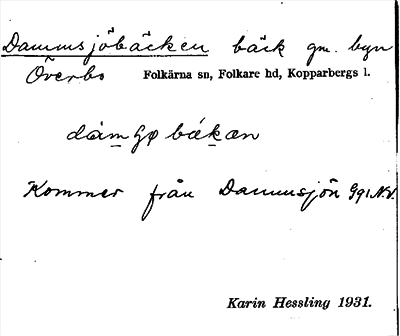 Dammsjöbäcken bäck gm. byn
Överbo Folkärna sn, Folkare hd, Kopparbergs l.
dàmʃø bɛ́kæn
Kommer från Dammsjön
Karin Hessling 1931.